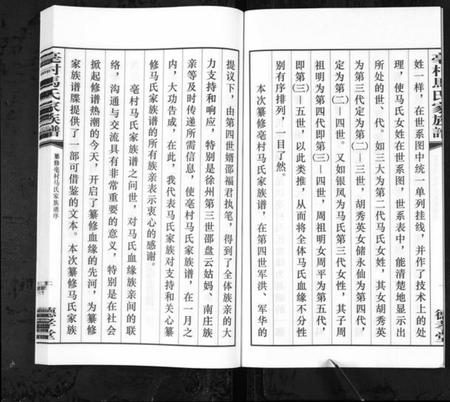 亳村馬氏家族譜
姓一样，在世系图中统一单列挂线，并作了技术上的处
理，使马氏女姓在世系图，世系表中，能清楚地显示出
所处的世、代。如三大为第二代马氏女姓，其女胡秀英
为第三代定为第(二)—三世，胡秀英女储永仙为第四代，
定为第(二)—四世。又如银凤为马氏第三代女性，其子周
祖明为第四代即第(三)—四世，周祖明女周平为第五代，
即第(三)—五世，以此类推，从而将全体马氏血缘不分性
别有序排列，一目了然。
本次纂修亳村马氏家族谱，在第四世军洪、军华的
德孝堂
提议下，由第四世婿邵福君执笔，得到了全体族亲的大
力支持和响应，特别是徐州第三世邵盘云姑妈、南庄族
亲等及时传递所需信息，使亳村马氏家族谱，在一月之
内，大功告成，在此，我代表马氏家族对支持和关心纂
修马氏家族谱的所有族亲表示衷心的感谢。
亳村马氏家族谱之问世，对马氏血缘族亲间的联
络，沟通与交流具有非常重要的意义，特别是在社会
掀起修谱热潮的今天，开启了纂修血缘的先河，为纂修
家族谱牒提供了一部可借鉴的文本。本次纂修马氏家族
亳村馬氏家族譜
纂修亳村马氏家族谱序
二
德孝堂